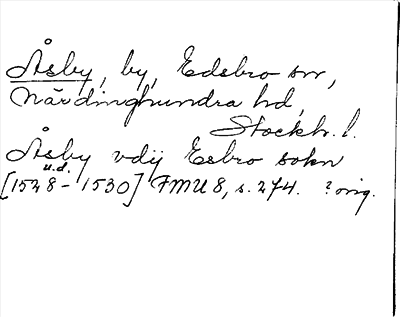 Åsby, by, Edsbro sn,
Närdinghundra hd,
Stockh. l.
Åsby vdij Esbro sokn
u.d.
[1528-1530] FMU 8, s. 274. ? orig.